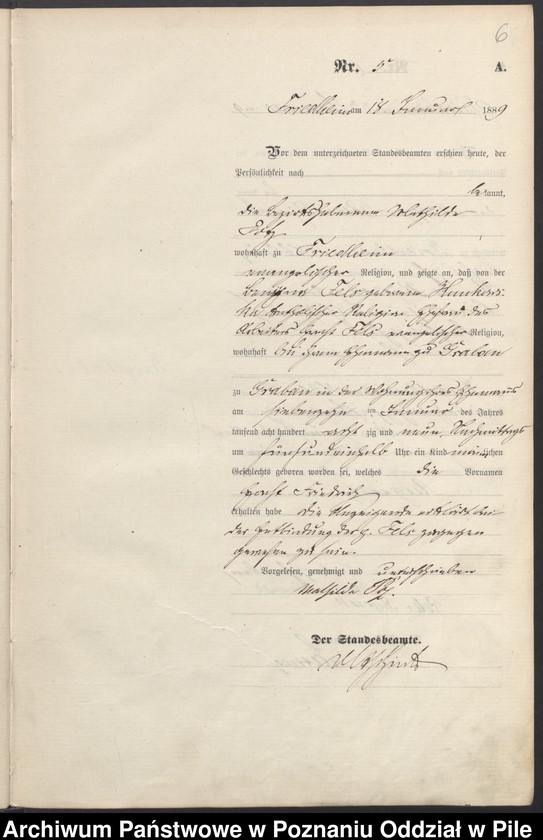 6
Nr. 5 A.
Friedheim am 18. Januar 1889
Vor dem unterzeichneten Standesbeamten erschien heute, der
Persönlichkeit nach
be kannt,
die Bezirkshebamme Mathilde
wohnhaft zu Friedheim
evangelischer Religion, und zeigte an, daß von der
Fels geborene
katholischer Religion Ehefrau des
Arbeiters Fels evangelischer Religion,
wohnhaft bei ihrem Ehemann zu Grabau
zu Grabau in der Wohnung ihres Ehemanns
am siebenzehn ten Januar des Jahres
tausend acht hundert acht zig und neun, Nachmittags
um fünfundeinhalb Uhr ein Kind männlichen
Geschlechts geboren worden sei, welches die Vornamen
Friedrich
erhalten habe die Anzeigende erklärt bei
der Entbindung der p. Fels zugegen
gewesen zu sein.
Vorgelesen, genehmigt und unterschrieben
Mathilde
Der Standesbeamte.
Archiwum Państwowe w Poznaniu Oddział w Pile